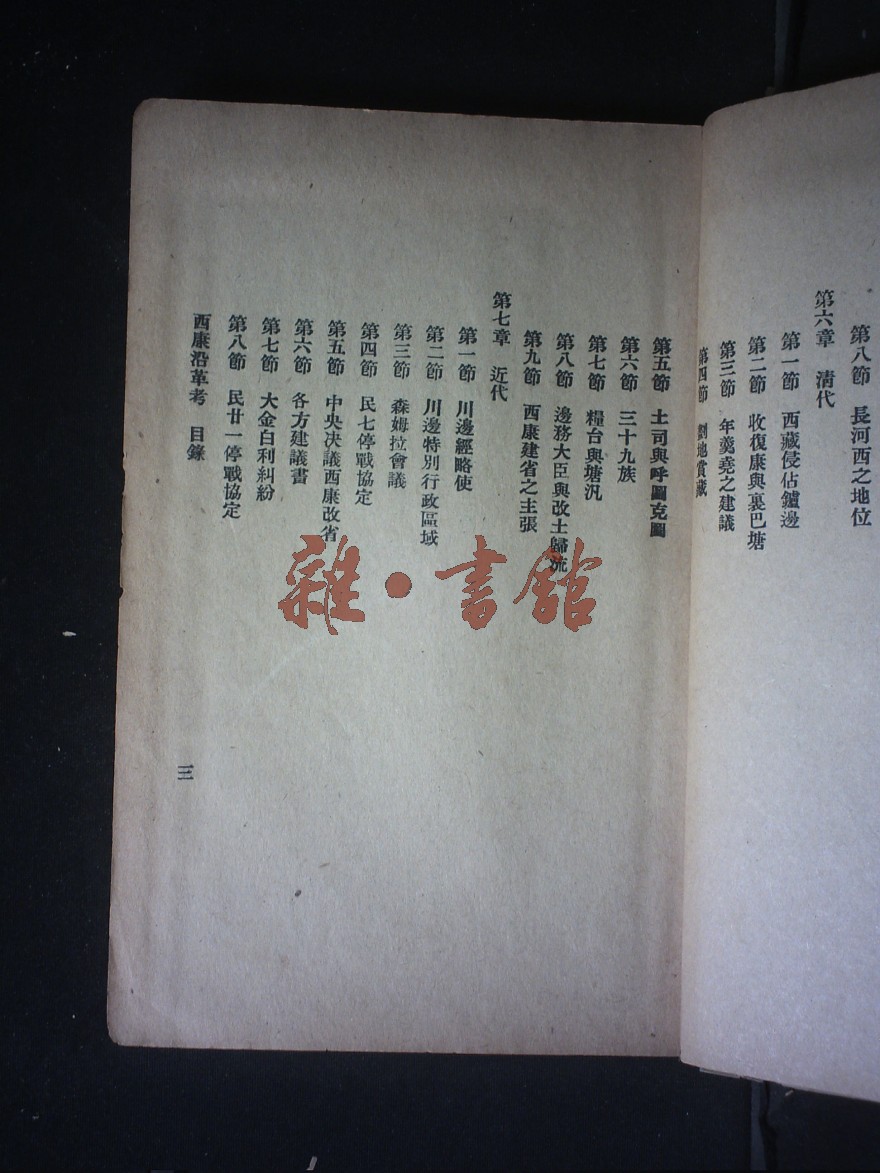 第八節　長河西之地位
第六章　清代
第一節　西藏侵佔鑪邊
第二節　收復康與裏巴塘
第三節　年羹堯之建議
第四節　劃地賞藏
第五節　土司與呼圖克圖
第六節　三十九族
第七節　糧台與塘汛
第八節　邊務大臣與改土歸流
第九節　西康建省之主張
第七章　近代
第一節　川邊經略使
第二節　川邊特別行政區域
第三節　森姆拉會議
第四節　民七停戰協定
第五節　中央決議西康改省
第六節　各方建議書
第七節　大金白利糾紛
第八節　民廿一停戰協定
西康沿革考　目錄
三
雜·書館